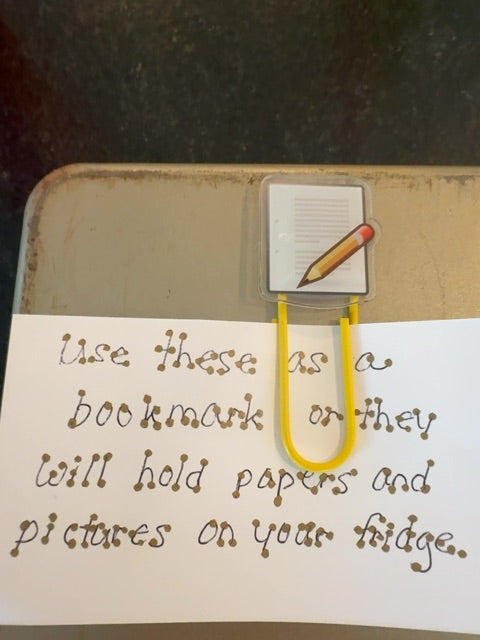 Use these as a
bookmark or they
will hold papers and
pictures on your fridge.